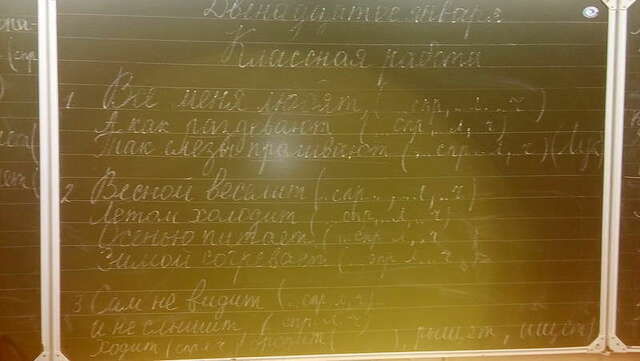 Двенадцатое января
Классная работа
1 Все меня любят ( .. спр., .. л., .. ч )
А как раздевают ( .. спр., л., ч )
Так слёзы проливают ( .. спр. л., ч ) ( Лук )
2 Весной веселит ( .. спр., .. л., .. ч )
Летом холодит ( .. спр., л., .. ч )
Осенью питает ( .. спр л., ч
Зимой согревает ( .. спр л., .. ч
3 Сам не видит ( .. спр., л, ч )
и не слышит ( спр л ч
ходит ( спр л ч ), рыщет, ищет )